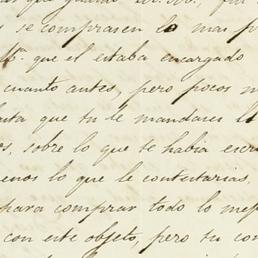 se comprasen lo mas p
que el estaba encargado
cuanto antes, pero pocos m
que tu le mandares
sobre lo que te habia escri
enos lo que le contestarias.
para comprar todo lo mej
con este objeto, pero tu con